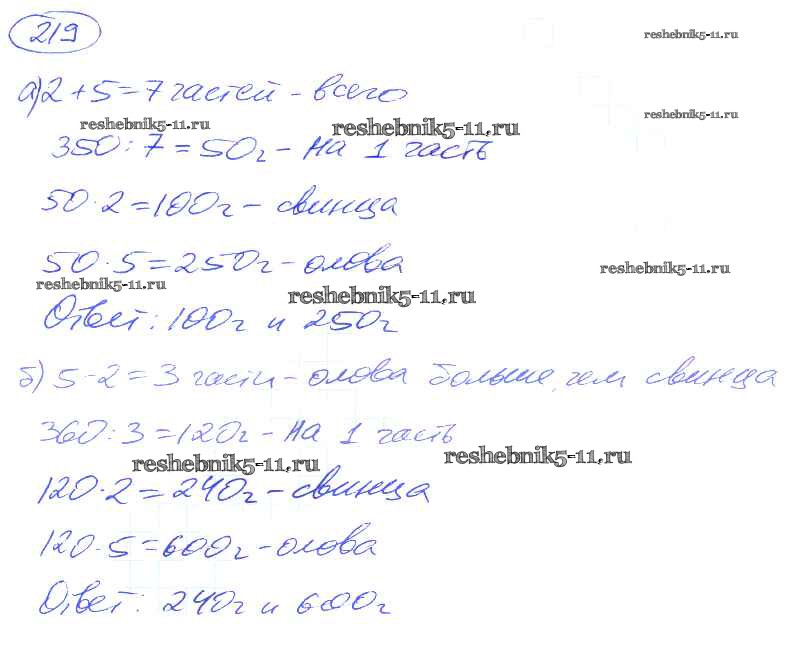 219
reshebnik5-11.ru
а) 2 + 5 = 7 частей - всего
reshebnik5-11.ru
reshebnik5-11.ru
reshebnik5-11.ru
350 : 7 = 50 г - на 1 часть
50 · 2 = 100 г - свинца
50 · 5 = 250 г - олова
reshebnik5-11.ru
reshebnik5-11.ru
reshebnik5-11.ru
Ответ: 100 г и 250 г
б) 5 - 2 = 3 части - олова больше, чем свинца
360 : 3 = 120 г - на 1 часть
reshebnik5-11.ru
reshebnik5-11.ru
120 · 2 = 240 г - свинца
120 · 5 = 600 г - олова
Ответ: 240 г и 600 г